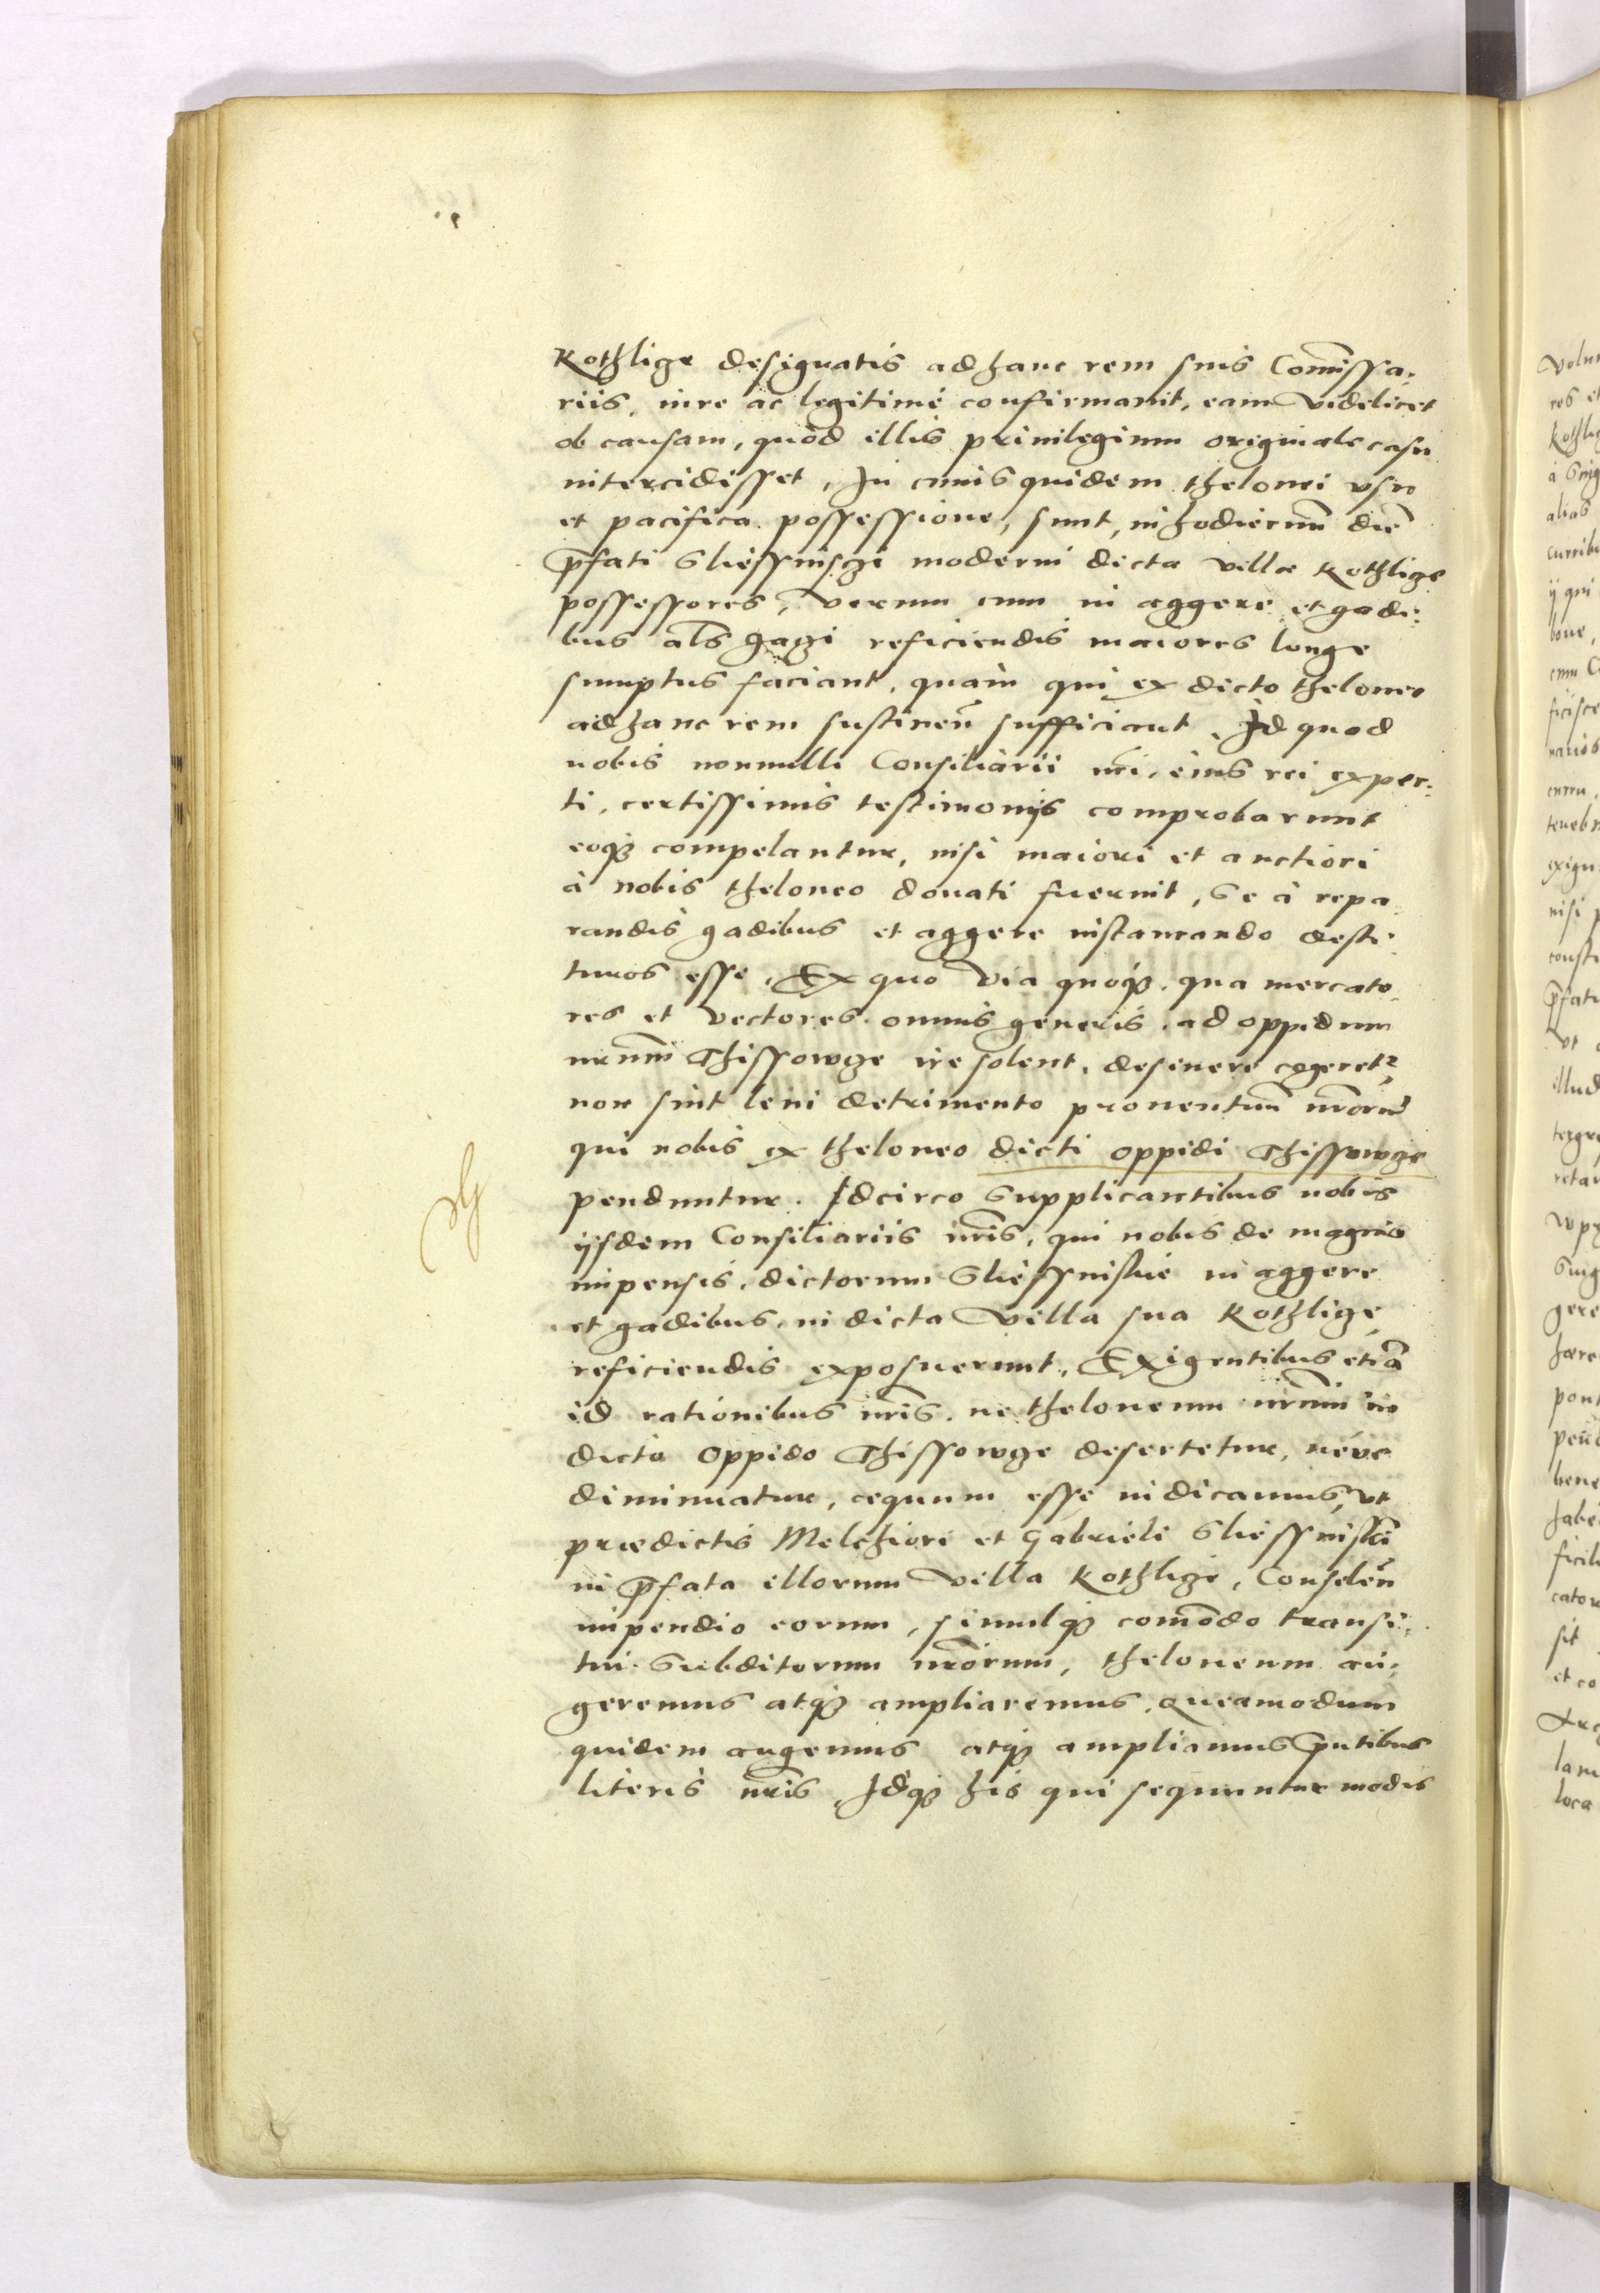 Kothlige designatis ad hanc rem suis Com̄issa,
riis, iure ac legitimé confirmauit, eam videlicet
ob causam, quòd illis priuilegium originale casu
intercidisset, In cuius quidem thelonei vsu
et pacifica possessione, sunt, in hodiernū diē
p̄fati Gliessinszi moderni dictæ villæ Kothlige
possessores, Verum cum in aggere et gadi:
bus al̄s gazi reficiendis maiores longe
sumptus faciant, quàm qui ex dicto theloneo
ad hanc rem sustineñ sufficiant, Id quod
nobis nonnulli Consiliarii nr̄i, eius rei exper:
ti, certissimis testimonijs comprobarunt
eoqȝ compelantur, nisi maiori et auctiori
à nobis theloneo donati fuerint, Se à repa
randis gadibus et aggere instaurando desti:
turos esse, Ex quo via quoqȝ, qua mercato,
res et vectores omnis generis, ad oppidum
nr̄um Thissowge ire solent, desinere cogeretr,
non sint leui detrimento prouentuū nr̄orū
qui nobis ex theloneo dicti oppidi Thissowge
penduntur. Idcirco Supplicantibus nobis
ijsdem Consiliariis nr̄is, qui nobis de magnis
impensis, dictorum Gliessinskie in aggere
et gadibus, in dicta Villa sua Kothlige,
reficiendis exposuerunt, Exigentibus etiā
id rationibus nr̄is, ne theloneum nr̄um in
dicto Oppido Thissowge desertetur, néve
diminuatur, æquum esse iudicauimus, vt
prædictis Melchiori et Gabrieli Gliessinski
in p̄fata illorum Villa Kothlige, Consuleñ
impendio eorum, simulqȝ com̄odo transi:
tui Subditorum nr̄orum, theloneum au:
geremus atqȝ ampliaremus, Queamodum
quidem augemus atqȝ ampliamus p̄ntibus
literis nr̄is, Idqȝ his qui sequuntur modis